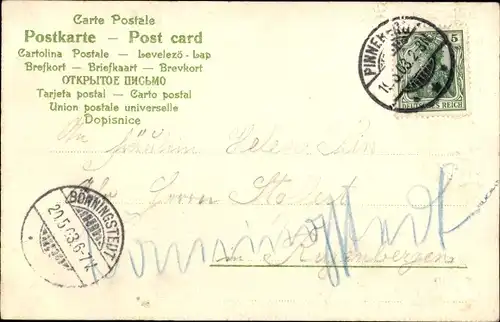 Carte Postale
Postkarte — Post card
Cartolina Postale — Levelező-Lap
Brefkort — Briefkaart — Brevkort
ОТКРЫТОЕ ПИСЬМО
Tarjeta postal — Carto postal
Union postale universelle
Dopisnice
PINNEBERG
5
DEUTSCHES REICH
An Fräulein Helene
Herrn
Bönningstedt
in Rugenbergen
BÖNNINGSTEDT
20.5.03.6-7